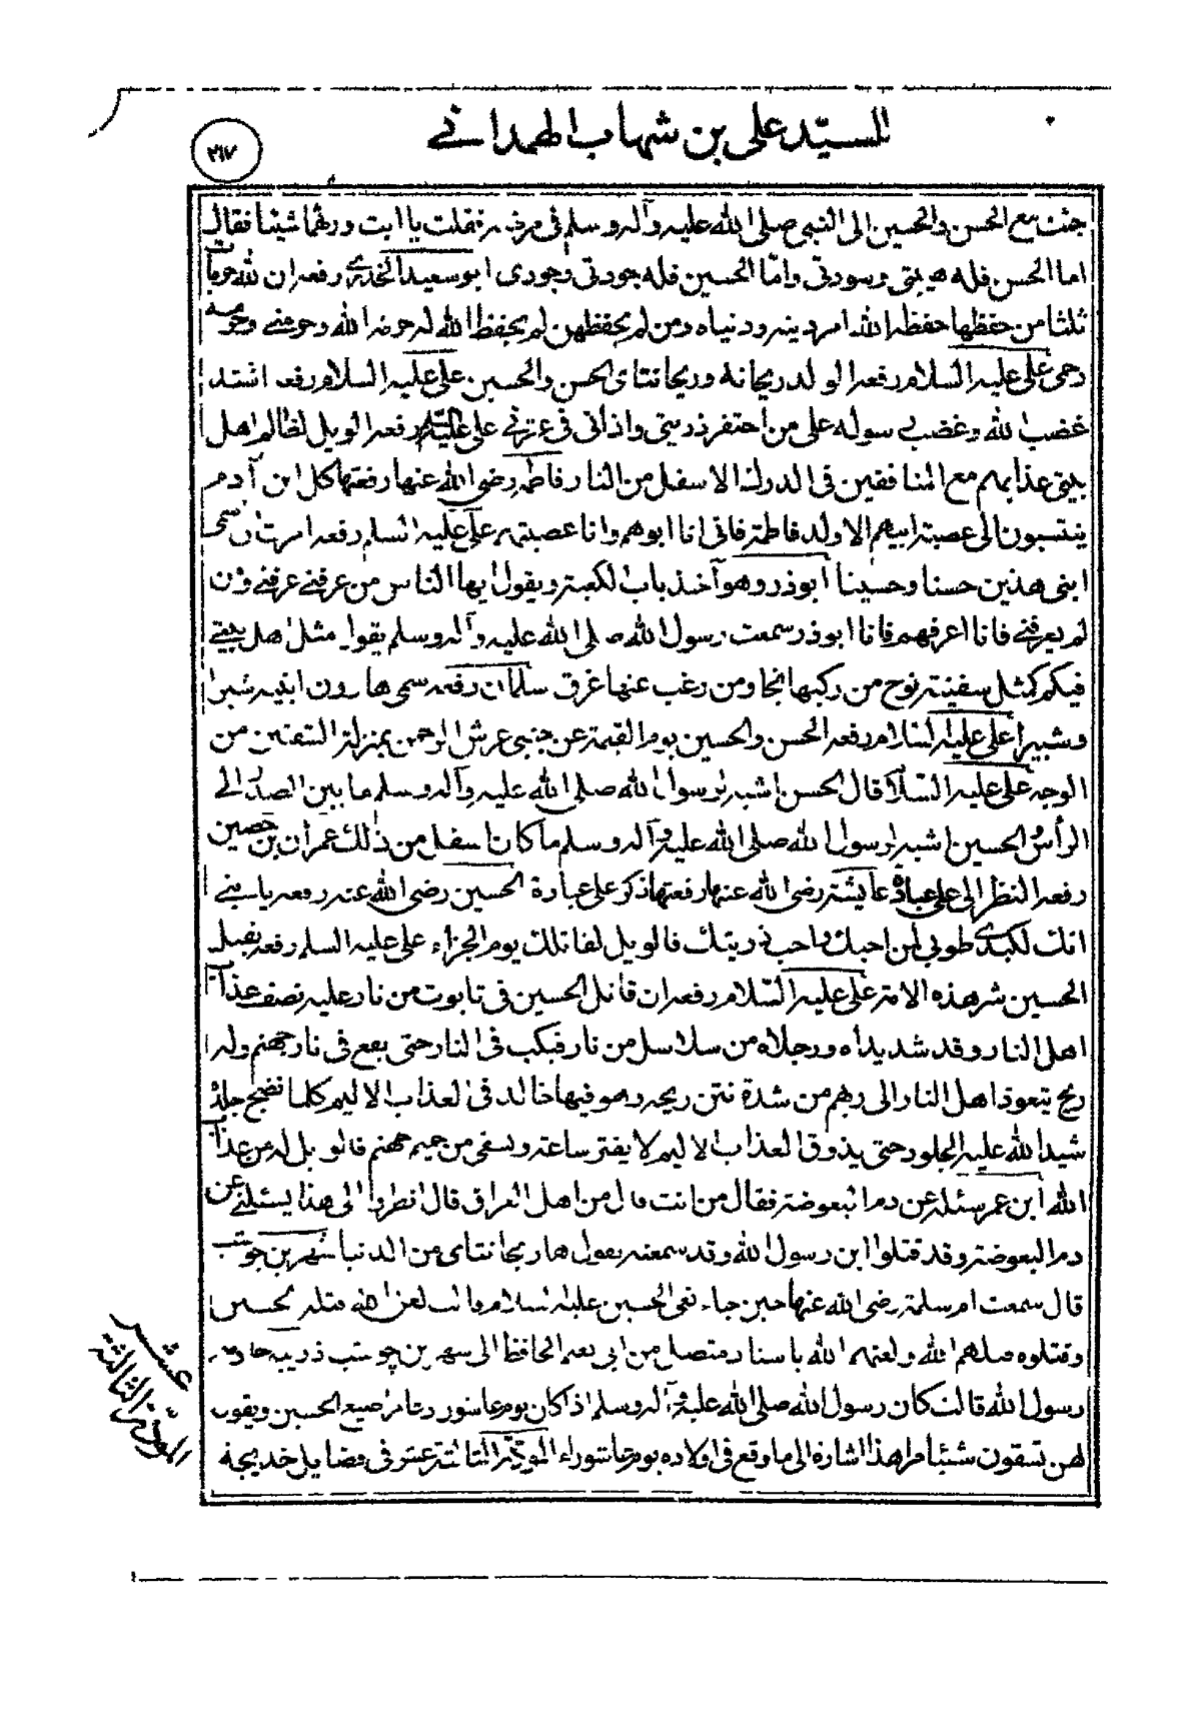 للسيّد علی بن شهاب الهمدانے
٢١٧
جئت مع الحسن والحسين الى النبى صلى الله عليه وآله وسلم فى مرضه فقلت يا ابت ورثهما شيئا فقال
اما الحسن فله هيبتى وسوددى واما الحسين فله جودتى وجودى ابو سعيد الخدرى رفعه ان لله حرمات
ثلثا من حفظها حفظه الله امر دينه ودنياه ومن لم يحفظهن لم يحفظ الله له حرمة الله وحرمتے وحرمة
رحمى على عليه السلام رفعه الولد ريحانة وريحانتاى الحسن والحسين على عليه السلام رفعه اشتد
غضب الله وغضب رسوله على من احتقر ذريتى واذانى فى عترتے على عليه السلم رفعه الويل لظالم اهل
بيتى عذابهم مع المنافقين فى الدرك الاسفل من النار فاطمة رضى الله عنها رفعتها كل ابن آدم
ينتسبون الى عصبة ابيهم الا ولد فاطمة فانى انا ابوهم وانا عصبتهم على عليه السلم رفعه امرت ان سمى
ابنى هذين حسنا وحسينا ابوذر وهو آخذ باب الكعبة ويقول ايها الناس من عرفنے عرفنے ومن
لم يعرفنے فانا اعرفهم فانا ابوذر سمعت رسول الله صلى الله عليه وآله وسلم يقول مثل اهل بيتے
فيكم كمثل سفينة نوح من ركبها نجا ومن رغب عنها غرق سلمان رفعه سمى هارون ابنيه شبرا
وشبيرا على عليه السلام رفعه الحسن والحسين يوم القيمة عن جنبى عرش الرحمن بمنزلة الشنفين من
الوجه على عليه السلام قال الحسن اشبه برسول الله صلى الله عليه وآله وسلم ما بين الصدر الى
الرأس والحسين اشبه لرسول الله صلى الله عليه وآله وسلم ما كان اسفل من ذلك عمران بن حصين
رفعه النظر الى على عبادة عايشة رضى الله عنها رفعتها ذكر على عبادة الحسين رضى الله عنه رفعه يا بنے
انك لكبدى طوبى لمن احبك واحب ذريتك فالويل لقاتلك يوم الجزاء على عليه السلم رفعه يقتل
الحسين شر هذه الامة على عليه السلام رفعه ان قاتل الحسين فى تابوت من نار عليه نصف عذاب
اهل النار وقد شد يداه ورجلاه من سلاسل من نار فيكب فى النار حتى يقع فى نار جهنم وله
ريح يتعوذ اهل النار الى ربهم من شدة نتن ريحه وهو فيها خالد فى العذاب الاليم كلما نضج جلده
شيد الله عليه الجلود حتى يذوق العذاب الاليم لا يفتر ساعة ويسقى من حميم جهنم فالويل له من عذاب
الله ابن عمر سئله عن دم البعوضة فقال من انت قال من اهل العراق قال انظروا الى هذا يسئلنے عن
دم البعوضة وقد قتلوا ابن رسول الله وقد سمعته يقول هما ريحانتاى من الدنيا شهر بن حوشب
قال سمعت ام سلمة رضى الله عنها حين جاء نعى الحسين عليه السلام قالت لعن الله قتلة الحسين
وقتلوه قتلهم الله ولعنهم الله باسناد متصل من ابى نعيم الحافظ الى شهر بن حوشب
رسول الله قالت كان رسول الله صلى الله عليه وآله وسلم اذ كان يوم عاشور دعا مرضيع الحسين ويقول
لهن تسقون شيئا مر هذا اشارة الى ما وقع فى اولاده يوم عاشوراء المودّة الثالثة عشر فى فضايل خديجة
المودّة الثالثة
عشر